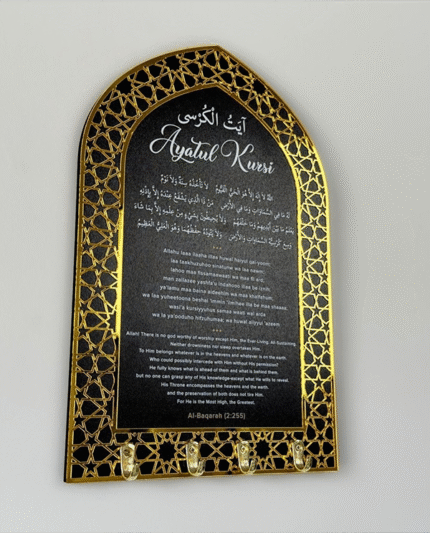 آيَتُ الْكُرْسِى
Ayatul Kursi
اللهُ لَا إِلٰهَ إِلَّا هُوَ الْحَيُّ الْقَيُّومُ لَا تَأْخُذُهُ سِنَةٌ وَلَا نَوْمٌ
لَهُ مَا فِي السَّمَاوَاتِ وَمَا فِي الْأَرْضِ مَنْ ذَا الَّذِي يَشْفَعُ عِنْدَهُ إِلَّا بِإِذْنِهِ
يَعْلَمُ مَا بَيْنَ أَيْدِيهِمْ وَمَا خَلْفَهُمْ وَلَا يُحِيطُونَ بِشَيْءٍ مِنْ عِلْمِهِ إِلَّا بِمَا شَاءَ
وَسِعَ كُرْسِيُّهُ السَّمَاوَاتِ وَالْأَرْضَ وَلَا يَئُودُهُ حِفْظُهُمَا وَهُوَ الْعَلِيُّ الْعَظِيمُ
Allahu laaa ilaaha illaa huwal haiyul qai-yoom;
laa taakhuzuhoo sinatunw wa laa nawm;
lahoo maa fissamaawaati wa maa fil ard;
man zallazee yashfa'u indahooo illaa be iznih,
ya'lamu maa baina aideehim wa maa khalfahum;
wa laa yuheetoona beshai 'immin 'ilmihee illa be maa shaaaa;
wasi'a kursiyyuhus samaa waati wal arda
wa la ya'ooduho hifzuhumaa; wa huwal aliyyul 'azeem
Allah! There is no god worthy of worship except Him, the Ever-Living, All-Sustaining.
Neither drowsiness nor sleep overtakes Him.
To Him belongs whatever is in the heavens and whatever is on the earth.
Who could possibly intercede with Him without His permission?
He fully knows what is ahead of them and what is behind them,
but no one can grasp any of His knowledge-except what He wills to reveal.
His Throne encompasses the heavens and the earth,
and the preservation of both does not tire Him.
For He is the Most High, the Greatest.
Al-Baqarah (2:255)